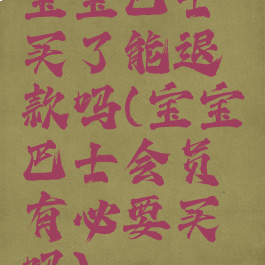 宝宝巴士
买了能退
款吗(宝宝
巴士会员
有必要买
吗)